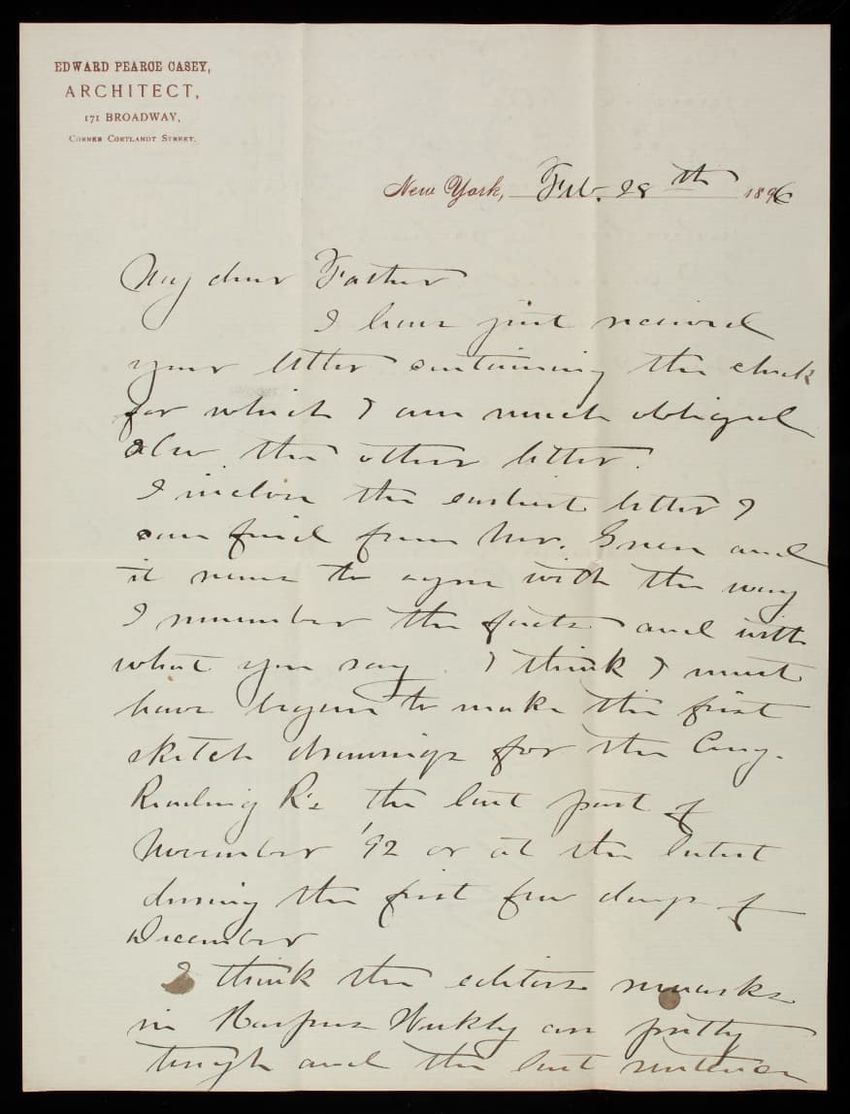 EDWARD PEARCE CASEY,
ARCHITECT,
171 BROADWAY,
CORNER CORTLANDT STREET.
New York, Feb. 28th 1896
My dear Father
I have just received
your letter containing the check
for which I am much obliged
also the other letter.
I inclose the earliest letter I
can find from Mr. Green and
it seems to agree with the way
I remember the facts and with
what you say. I think I must
have begun to make the first
sketch drawings for the Cong.
Reading R's the last part of
November '92 or at the latest
during the first few days of
December
I think the editors remarks
in Harpers Weekly are pretty
tough and the last sentence